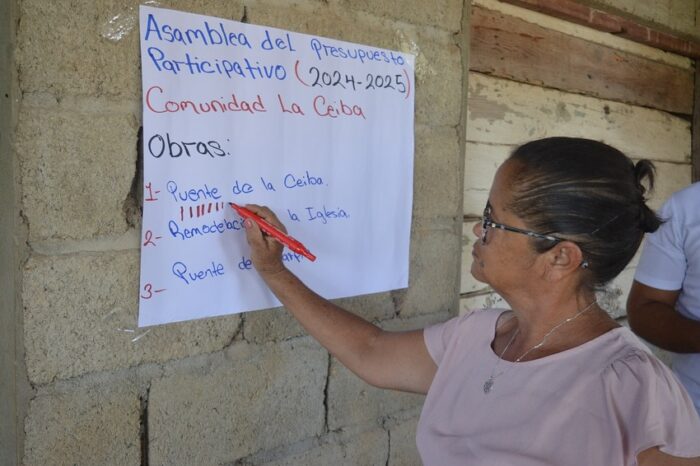 Asamblea del Presupuesto
Participativo (2024-2025)
Comunidad La Ceiba
Obras:
1- Puente de la Ceiba.
2- Remodelación la Iglesia.
3- Puente de